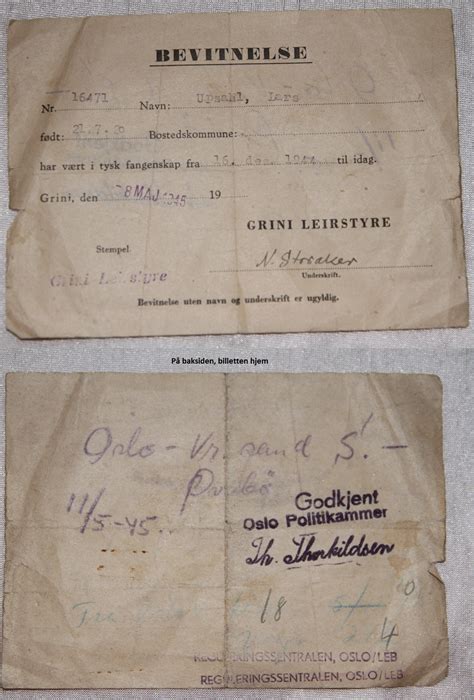 BEVITNELSE
Nr. 16471 Navn: Upsahl, Lars
født: 21.7.20 Bostedskommune:
har vært i tysk fangenskap fra 16. des. 1944 til idag.
Grini, den 8 MAJ 1945 19
GRINI LEIRSTYRE
Stempel.
Grini Leirstyre
Underskrift.
Bevitnelse uten navn og underskrift er ugyldig.
På baksiden, billetten hjem
Oslo - Kr. sand S. -
11/5-45.
Godkjent
Oslo Politikammer
Th. Thorkildsen
18
4
REGULERINGSSENTRALEN, OSLO/LEB
REGULERINGSSENTRALEN, OSLO/LEB